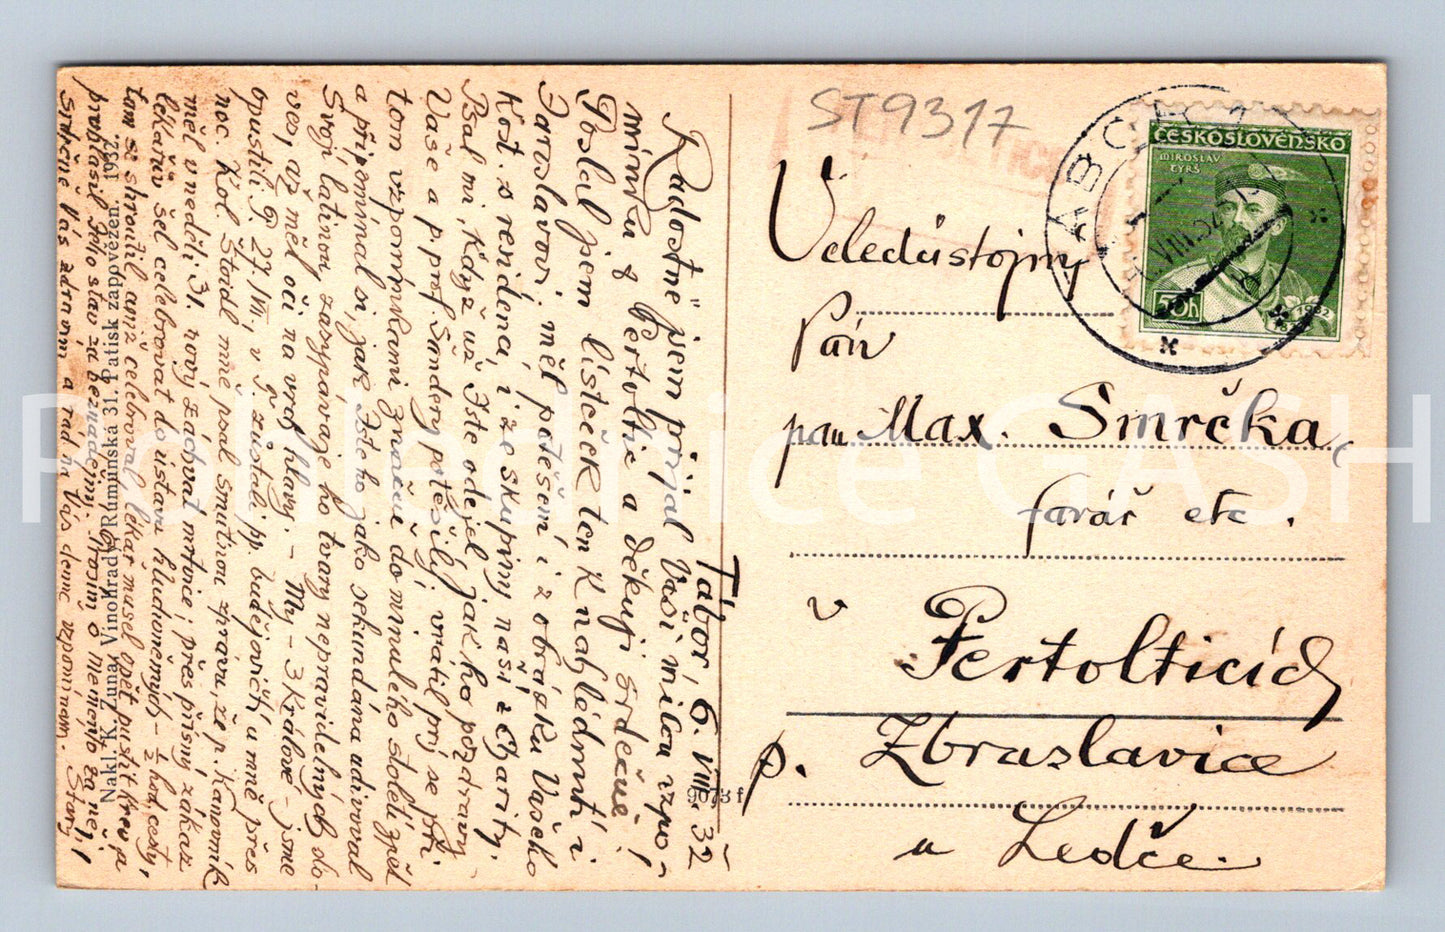 ST9317
ČESKOSLOVENSKO
MIROSLAV
TYRŠ
50h
1932
TÁBOR 1
Veledůstojný
Pán
pan Max. Smrčka,
farář etc.
v Pertolticích
p. Zbraslavice
u Ledče.
9073 f
Tábor, 6. VIII. 32
Radostně jsem přijal Vaši milou vzpo-
mínku z Pertoltic a děkuji srdečně!
Poslal jsem lísteček ten K nahlédnutí i
Jaroslavovi; měl potěšení i z obrázku Vašeho
Kost. s residencí, i ze skupiny naší z Charity.
Psal mi, Když už Jste odejel, jak ho pozdravy
Vaše a p. prof. Šimdery potěšily, vrátil prý se při
tom vzpomínkami značně do minulého století zpět
a připomínal si, jak Jste ho jako sekundána udivoval
Svojí latinou,
ves, až měl oči na vrch hlavy. – My – 3 Králové – jsme
opustili 27/VII, v Č. zůstali pp. budějovičtí a mně přes
noc. Kol. Štaidl mně psal smutnou zprávu, že p. Kanovník
měl v neděli 31. nový záchvat mrtvice; přes přísný zákaz
lékařův šel celebrovat do ústavu hluchoněmých – ½ hod. cesty,
tam se zhroutil aniž celebroval, lékař musel opět pustit krev a
prohlásil jeho stav za beznadějný. Prosím o memento za něj!
Srdečně Vás zdravím a rád na Vás denně vzpomínám. Starý
Nakl. K. Zuna, Vinohrady, Rumunská 31. Patisk zapovězen. 1932.
Pohlednice GASH